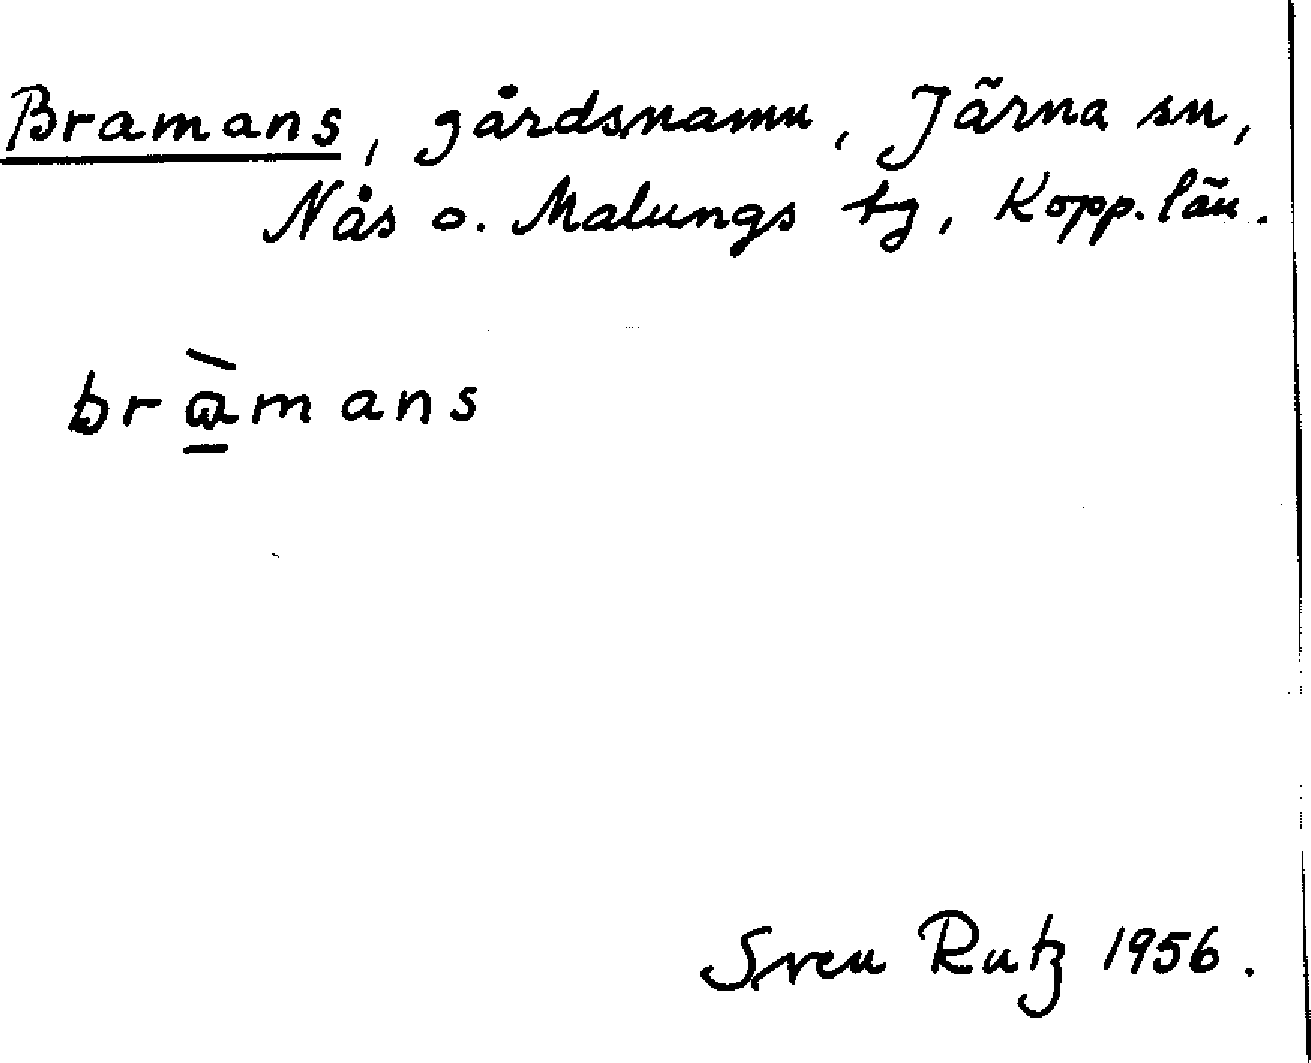 Bramans, gårdsnamn, Järna sn,
Nås o. Malungs tg, Kopp. län.
brà̱mans
Sven Rutz 1956.